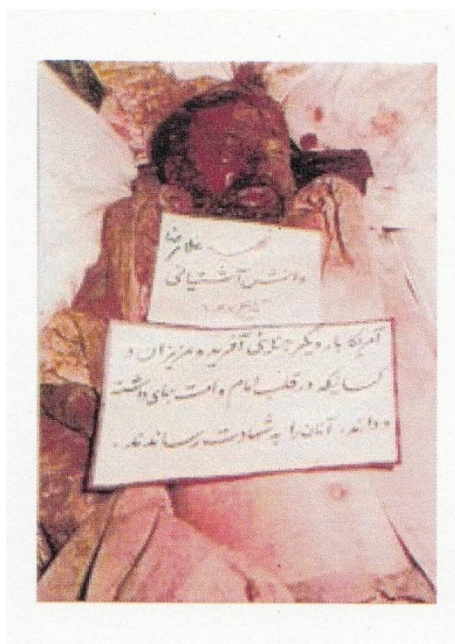 غلامرضا
دانش آشتیانی
آمریکا بار دیگر جنایتی آفریده و عزیزان و
کسانیکه در قلب امام و امت جای داشته
و دارند، آنان را به شهادت رساندند.